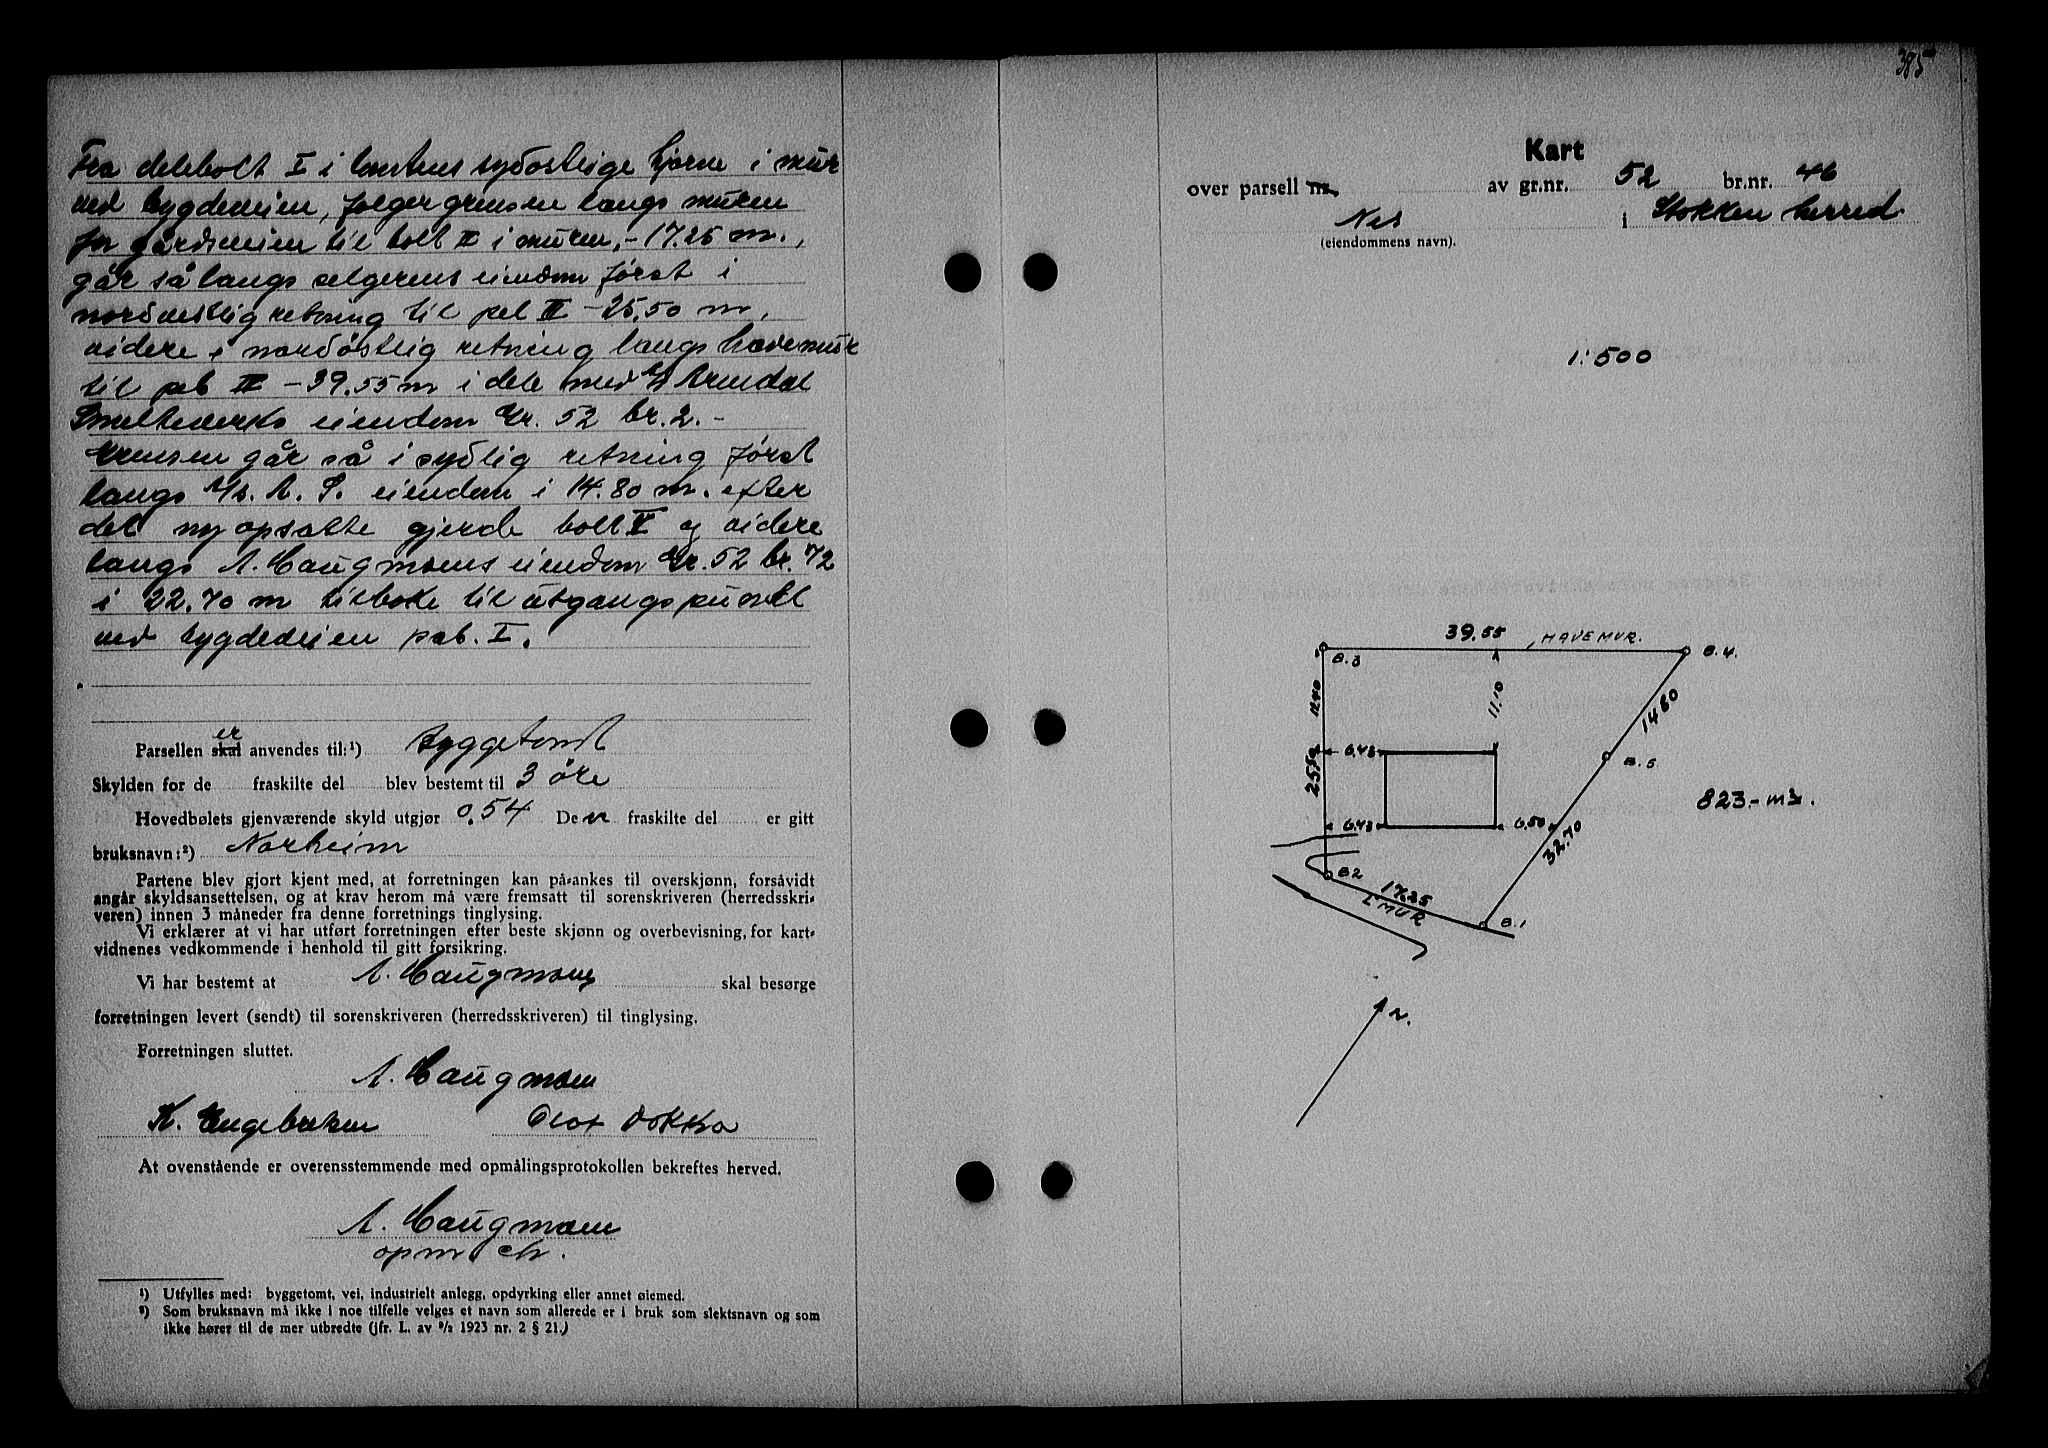 Fra delebolt I i tomtens sydöstlige hjørne i mur
ved bygdeveien, følger grensen langs muren
for gårdsveien til bolt II i muren, - 17.25 m.,
går så langs selgerens eiendom først i
nordvestlig retning til pel III - 25.50 m,
videre i nordöstlig retning langs havemur
til pel IV - 39.55 m i dele med A/S Arendal
Smelteverks eiendom Gr. 52 br. 2. -
Grensen går så i sydlig retning først
langs A/s. A. S. eiendom i 14.80 m. efter
det ny opsatte gjerde bolt V og videre
langs A. Haugmoens eiendom Gr. 52 br. 72
i 22.70 m tilbake til utgangspunkt
ved bygdeveien pab. I.
er
Parsellen skal anvendes til:¹) byggetomt
Skylden for de fraskilte del blev bestemt til 3 öre
Hovedbølets gjenværende skyld utgjør 0,54 Den fraskilte del er gitt
bruksnavn:²) Norheim
Partene blev gjort kjent med, at forretningen kan på-ankes til overskjønn, forsåvidt
angår skyldsansettelsen, og at krav herom må være fremsatt til sorenskriveren (herredsskri-
veren) innen 3 måneder fra denne forretnings tinglysing.
Vi erklærer at vi har utført forretningen efter beste skjønn og overbevisning, for kart-
vidnenes vedkommende i henhold til gitt forsikring.
Vi har bestemt at A. Haugmoen skal besørge
forretningen levert (sendt) til sorenskriveren (herredsskriveren) til tinglysing.
Forretningen sluttet.
A. Haugmoen
K. Engebretsen Olaf Dokka
At ovenstående er overensstemmende med opmålingsprotokollen bekreftes herved.
A. Haugmoen
opm ch.
¹) Utfylles med: byggetomt, vei, industrielt anlegg, opdyrking eller annet øiemed.
²) Som bruksnavn må ikke i noe tilfelle velges et navn som allerede er i bruk som slektsnavn og som
ikke hører til de mer utbredte (jfr. L. av ⁹/₂ 1923 nr. 2 § 21.)
385
Kart
over parsell nr. av gr.nr. 52 br.nr. 46
Nes i Stokken herred.
(eiendommens navn).
1:500
39.55 HAVEMUR.
B.3 B.4.
12.40 11.10 14.80
6.43 B.5.
25.50
823.- m2.
6.43 6.50
32.70
B2
17.25
MUR
B.1
N.